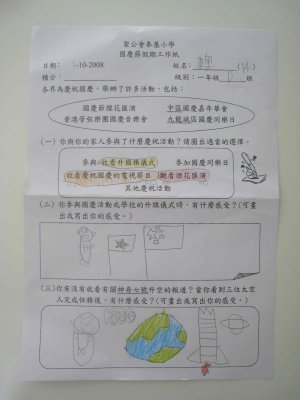 聖公會奉基小學
國慶節假期工作紙
日期： 1-10-2008 姓名： (14)
積分： 級別：一年級 B 班
各界為慶祝國慶，舉辦了許多活動，包括：
國慶節煙花匯演 中區國慶嘉年華會
香港管弦樂團國慶音樂會 九龍城區國慶同樂日
(一) 你與你的家人參與了什麼慶祝活動？請圈出適當的選擇。
參與/收看升國旗儀式 參加國慶同樂日
收看慶祝國慶的電視節目 觀看煙花匯演
其他慶祝活動
(二) 你參與國慶活動或學校的升旗儀式時，有什麼感受？(可畫
出或寫出你的感受。)
(三) 你有沒有收看有關神舟七號升空的報道？當你看到三位太空
人完成任務後，有什麼感受？(可畫出或寫出你的感受。)